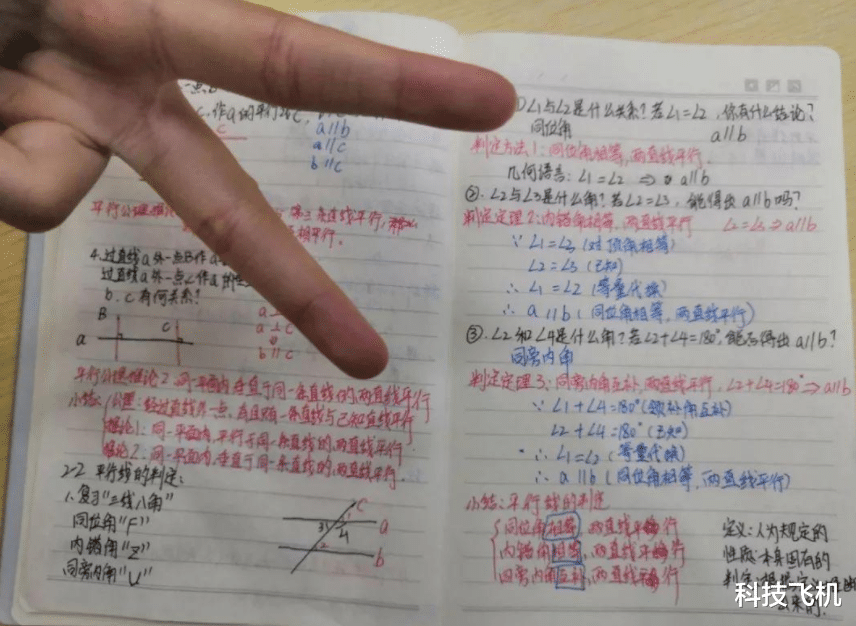 作a的平行线c,
c
a∥b
a∥c
b∥c
平行公理推论
条直线平行,
相平行。
4.过直线a外一点B作a
过直线a外一点C作a的
b、c有何关系?
B
c
a
a⊥
a⊥c
b∥c
平行公理推论2:同一平面内,垂直于同一条直线的两直线平行
小结:公理:经过直线外一点,有且只有一条直线与已知直线平行
推论1:同一平面内,平行于同一条直线的两直线平行.
推论2:同一平面内,垂直于同一条直线的两直线平行.
2-2 平行线的判定:
1.复习“三线八角”
同位角“F”
内错角“Z”
同旁内角“U”
c
a
b
∠1与∠2是什么关系?若∠1=∠2,你有什么结论?
同位角
a∥b
判定方法1:同位角相等,两直线平行.
几何语言:∠1=∠2 ⇒ a∥b
②.∠2与∠3是什么角?若∠2=∠3,能得出a∥b吗?
判定定理2:内错角相等,两直线平行 ∠2=∠3⇒a∥b
∵∠1=∠3(对顶角相等)
∠2=∠3(已知)
∴∠1=∠2(等量代换)
∴a∥b(同位角相等,两直线平行)
③.∠2和∠4是什么角?若∠2+∠4=180°,能否得出a∥b?
同旁内角
判定定理3:同旁内角互补,两直线平行.∠2+∠4=180°⇒a∥b
∵∠1+∠4=180°(邻补角互补)
∠2+∠4=180°(已知)
∴∠1=∠2(等量代换)
∴a∥b(同位角相等,两直线平行)
小结:平行线的判定
同位角相等,两直线平行
内错角相等,两直线平行
同旁内角互补,两直线平行
定义:人为规定的
性质:本身固有的
判定:根据
来的.
科技飞机